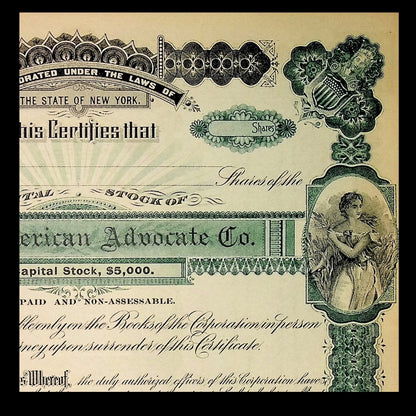 ORATED UNDER THE LAWS OF
THE STATE OF NEW YORK.
his Certifies that
Shares
Shares of the
TAL STOCK OF
erican Advocate Co.
apital Stock, $5,000.
PAID AND NON-ASSESSABLE.
only on the Books of the Corporation in person
ncy upon surrender of this Certificate.
s Whereof, the duly authorized officers of this Corporation have